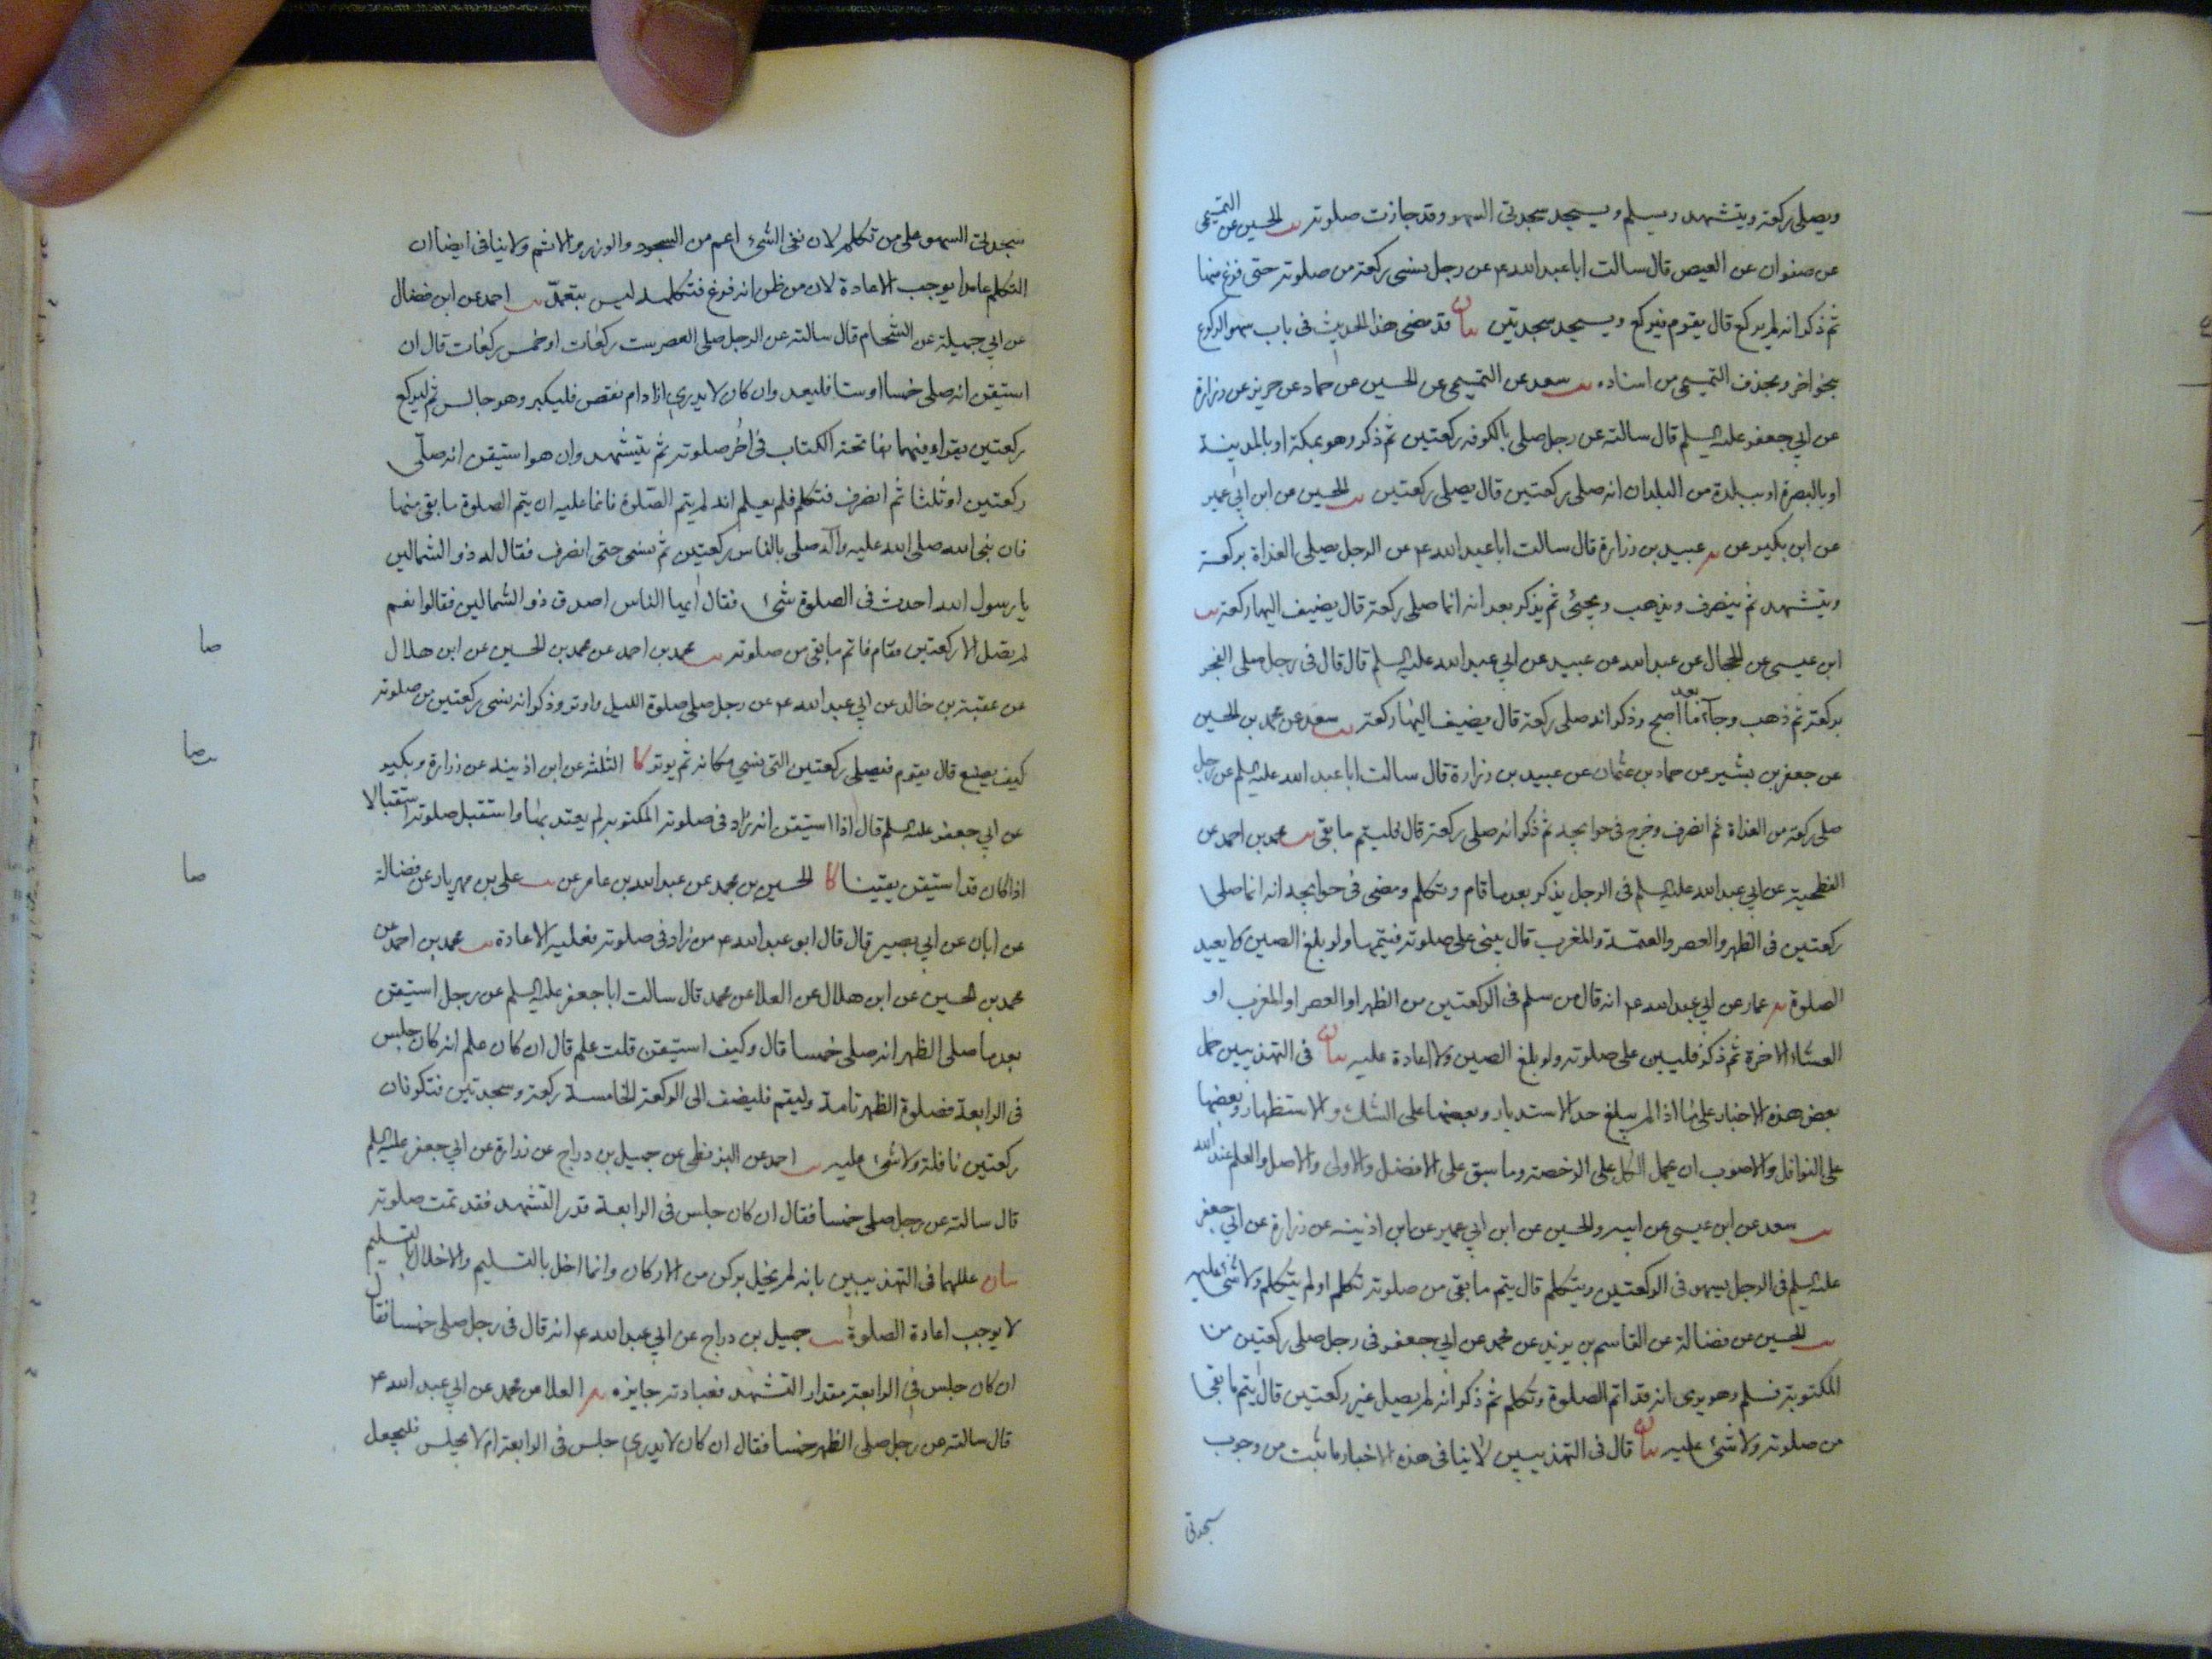 ويصلي ركعة ويتشهد ويسلم ويسجد سجدتي السهو وقد جازت صلوته يب الحسين عن التميمي
عن صفوان عن العيص قال سالت ابا عبد الله ع عن رجل نسي ركعة من صلوته حتى فرغ منها
ثم ذكر انه لم يركع قال يقوم فيركع ويسجد سجدتين بيان قد مضى هذا الحديث في باب سهو الركوع
بنحو اخر وبحذف التميمي من اسناده يب سعد عن التميمي عن الحسين عن حماد عن حريز عن زرارة
عن ابي جعفر عليه السلم قال سالته عن رجل صلى بالكوفه ركعتين ثم ذكر وهو بمكة او بالمدينة
او بالبصرة او ببلدة من البلدان انه صلى ركعتين قال يصلي ركعتين يب الحسين عن ابن ابي عمير
عن ابن بكير عن يه عبيد بن زرارة قال سالت ابا عبد الله ع عن الرجل يصلي الغداة بركعة
ويتشهد ثم ينصرف ويذهب ويجيئ ثم يذكر بعد انه انما صلى ركعة قال يضيف اليها ركعة يب
ابن عيسى عن الحجال عن عبد الله عن عبيد عن ابي عبد الله عليه السلم قال قال في رجل صلى الفجر
بركعة ثم ذهب وجآء بعد ما اصبح وذكر انه صلى ركعة قال يضيف اليها ركعة يب سعد عن محمد بن الحسين
عن جعفر بن بشير عن حماد بن عثمان عن عبيد بن زرارة قال سالت ابا عبد الله عليه السلم عن رجل
صلى ركعة من الغداة ثم انصرف وخرج في حوايجه ثم ذكر انه صلى ركعة قال فليتم ما بقي يب محمد بن احمد عن
الفطحية عن ابي عبد الله عليه السلم في الرجل يذكر بعد ما قام وتكلم ومضى في حوايجه انه انما صلى
ركعتين في الظهر والعصر والعتمة والمغرب قال يبني على صلوته فيتمها ولو بلغ الصين ولا يعيد
الصلوة يه عمار عن ابي عبد الله ع انه قال من سلم في الركعتين من الظهر او العصر او المغرب او
العشاء الاخرة ثم ذكر فليبن على صلوته ولو بلغ الصين ولا اعادة عليه بيان في التهذيبين حمل
بعض هذه الاخبار على ما اذا لم يبلغ حد الاستدبار وبعضها على الشك والاستظهار وبعضها
على النوافل والاصوب ان يحمل الكل على الرخصة وما سبق على الافضل والاولى والاصل والعلم عند الله
يب سعد عن ابن عيسى عن ابيه والحسين عن ابن ابي عمير عن ابن اذينه عن زرارة عن ابي جعفر
عليه السلم في الرجل يسهو في الركعتين ويتكلم قال يتم ما بقي من صلوته تكلم او لم يتكلم ولا شئ عليه
يب الحسين عن فضالة عن القاسم بن يزيد عن محمد عن ابي جعفر في رجل صلى ركعتين من
المكتوبة فسلم وهو يرى انه قد اتم الصلوة وتكلم ثم ذكر انه لم يصل غير ركعتين قال يتم ما بقي
من صلوته ولا شئ عليه بيان قال في التهذيبين لا ينافي هذه الاخبار ما ثبت من وجوب
سجدتي
سجدتي السهو على من تكلم لان نفي الشئ اعم من السجود والوزر والاثم ولا ينافي ايضا ان
التكلم عامدا يوجب الاعادة لان من ظن انه فرغ فتكلمه ليس بتعمد يب احمد عن ابن فضال
عن ابي جميلة عن الشحام قال سالته عن الرجل صلى العصر ست ركعات او خمس ركعات قال ان
استيقن انه صلى خمسا او ستا فليعد وان كان لا يدري ازاد ام نقص فليكبر وهو جالس ثم ليركع
ركعتين يقراء فيهما بفاتحة الكتاب في آخر صلوته ثم يتشهد وان هو استيقن انه صلى
ركعتين او ثلثا ثم انصرف فتكلم فلم يعلم انه لم يتم الصلوة فانما عليه ان يتم الصلوة ما بقي منها
فان نبي الله صلى الله عليه وآله صلى بالناس ركعتين ثم نسي حتى انصرف فقال له ذو الشمالين
يا رسول الله احدث في الصلوة شئ فقال ايها الناس اصدق ذو الشمالين فقالوا نعم
لم يصل الا ركعتين فقام فاتم ما بقي من صلوته يب محمد بن احمد عن محمد بن الحسين عن ابن هلال
صا
عن عقبة بن خالد عن ابي عبد الله ع عن رجل صلى صلوة الليل واوتر وذكر انه نسي ركعتين من صلوته
كيف يصنع قال يقوم فيصلي ركعتين التي نسي مكانه ثم يوتر كا الثلثه عن ابن اذينه عن زرارة وبكير
يب صا
عن ابي جعفر عليه السلم قال اذا استيقن انه زاد في صلوته المكتوبه لم يعتد بها واستقبل صلوته استقبالا
اذا كان قد استيقن يقينا كا الحسين بن محمد عن عبد الله بن عامر عن يب علي بن مهزيار عن فضالة
صا
عن ابان عن ابي بصير قال قال ابو عبد الله ع من زاد في صلوته فعليه الاعادة يب محمد بن احمد عن
محمد بن الحسين عن ابن هلال عن العلا عن محمد قال سالت ابا جعفر عليه السلم عن رجل استيقن
بعد ما صلى الظهر انه صلى خمسا قال وكيف استيقن قلت علم قال ان كان علم انه كان جلس
في الرابعة فصلوة الظهر تامة وليقم فليضف الى الركعة الخامسة ركعة وسجدتين فتكونان
ركعتين نافلة ولا شئ عليه يب احمد عن البزنطي عن جميل بن دراج عن زرارة عن ابي جعفر عليه السلم
قال سالته عن رجل صلى خمسا فقال ان كان جلس في الرابعة قدر التشهد فقد تمت صلوته
بيان عللهما في التهذيبين بانه لم يخل بركن من الاركان وانما اخل بالتسليم والاخلال بالتسليم
لا يوجب اعادة الصلوة يب جميل بن دراج عن ابي عبد الله ع انه قال في رجل صلى خمسا فقال
ان كان جلس في الرابعة مقدار التشهد فعبادته جايزه يه العلا عن محمد عن ابي عبد الله ع
قال سالته عن رجل صلى الظهر خمسا فقال ان كان لا يدري جلس في الرابعة ام لا يجلس فليجعل